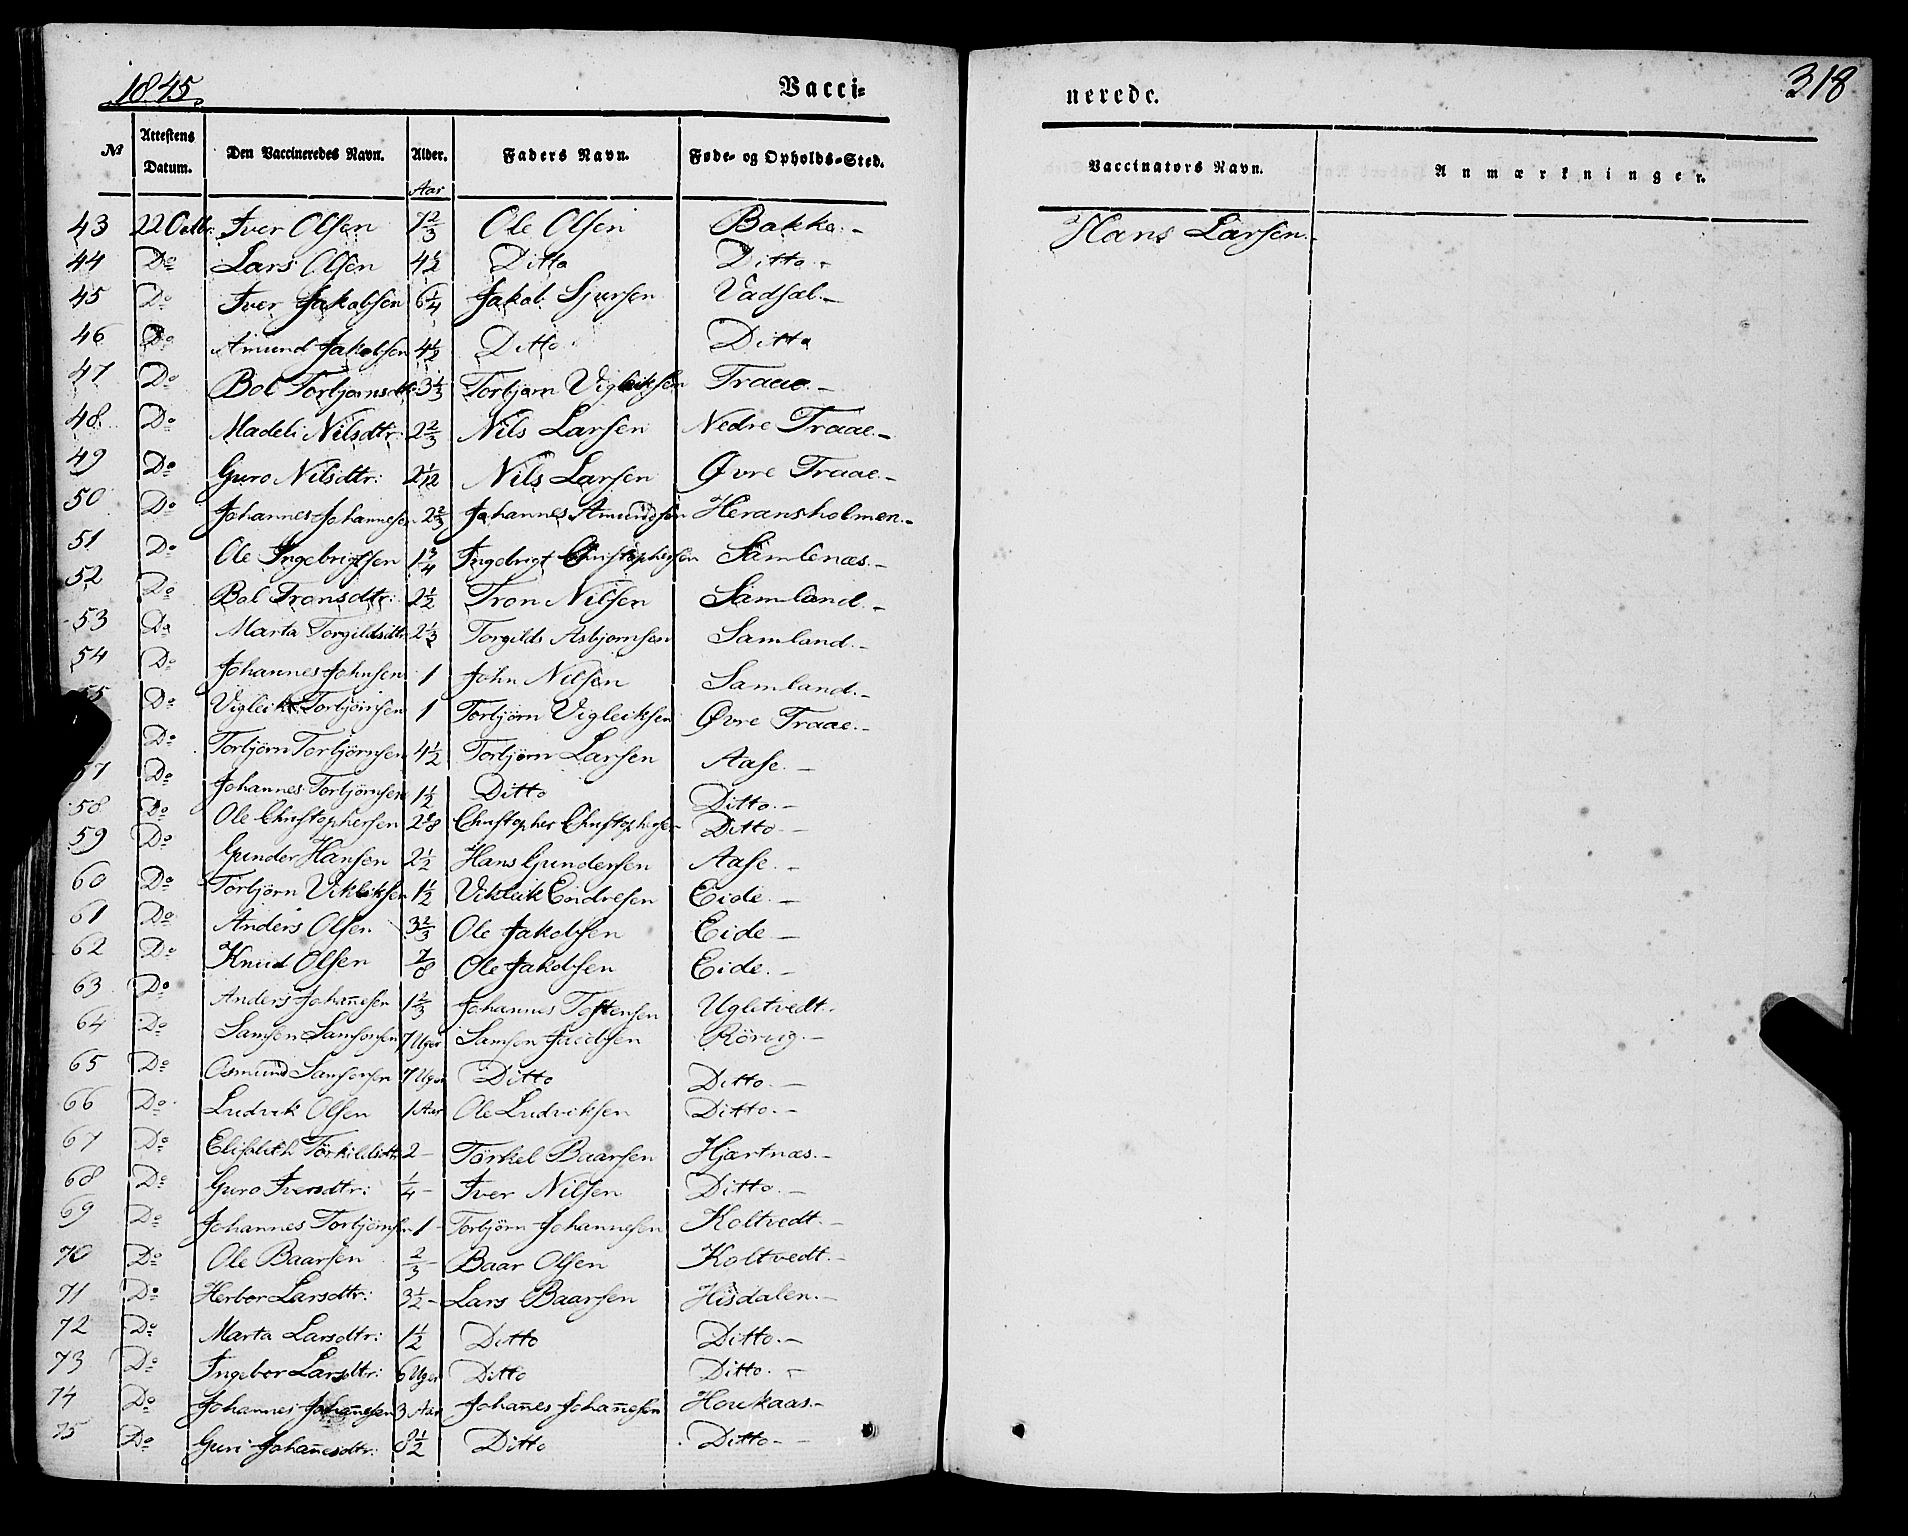 1845.
Vacci=
nerede.
318
№ Attestens Datum. Den Vaccineredes Navn. Alder. Faders Navn. Føde- og Opholds-Sted. Vaccinators Navn. Anmærkninger.
Aar
43 22 Octbr. Iver Olsen 1 2/3 Ole Olsen Bakke.- Hans Larsen.-
44 Do Lars Olsen 4 1/2 Ditto Ditto.-
45 Do Iver Jakobsen 6 1/4 Jakob Sjursen Vadsal.-
46 Do Amund Jakobsen 4 1/2 Ditto Ditto
47 Do Bol Torbjørnsdtr: 3 1/3 Torbjørn Vigleiksen Traae.-
48. Do Madeli Nilsdtr: 2 2/3 Nils Larsen Nedre Traae.-
49 Do Guro Nilsdtr: 2 1/12 Nils Larsen Øvre Traae.-
50 Do Johannes Johannesen 2 2/3 Johannes Amundsen Heransholmen.-
51 Do Ole Ingebrigtsen 1 3/4 Ingebrigt Christophersen Samlenæs.-
52 Do Bol Tronsdtr: 2 1/2 Tron Nilsen Samland.-
53 Do Marta Torgildsdtr 2 1/3 Torgilds Asbjornsen Samland.-
54 Do Johannes Johnsen 1 John Nilsen Samland.-
55 Do Vigleik Torbjörnsen 1 Torbjörn Vigleiksen Øvre Traae.-
Do Torbjörn Torbjörnsen 4 1/2 Torbjørn Larsen Aase.-
57 Do Johannes Torbjörnsen 1 1/2 Ditto Ditto.-
58 Do Ole Christophersen 2 Christopher Christophersen Ditto-
59 Do Gunder Hansen 2 1/2 Hans Gundersen Aase.-
60 Do Torbjörn Vikleiksen 1 1/2 Vikleik Endresen Eide.-
61 Do Anders Olsen 3 2/3 Ole Jakobsen Eide-
62 Do Knud Olsen 7/8 Ole Jakobsen Eide.-
63 Do Anders Johan̄esen 1 2/3 Johannes Tostensen Ugletvedt.
64 Do Samson Samsonsen 7 Uger Samson Jacobsen Rörvig.-
65 Do Osmund Samsonsen 7 Uger Ditto Ditto.-
66 Do Ludvik Olsen 1 Aar Ole Ludviksen Ditto.-
67 Do Elisabeth Törkildsdtr 2- Törkel Baarsen Hjartnæs.-
68 Do Guro Iversdtr: 1/4- Iver Nilsen Ditto.-
69 Do Johannes Torbjörnsen 1- Torbjörn Johannesen Koltvedt.-
70 Do Ole Baarsen 2/3- Baar Olsen Koltvedt.-
71 Do Herbor Larsdtr: 3 1/2- Lars Baarsen Hisdalen.-
72 Do Marta Larsdtr: 1 1/2 Ditto Ditto.-
73 Do Ingebor Larsdtr: 6 Uger Ditto Ditto.-
74 Do Johannes Johan̄esen 3 Aar Johan̄es Johan̄esen Houkaas.-
75 Do Guri Johan̄esdtr: 8 1/2 Ditto Ditto-